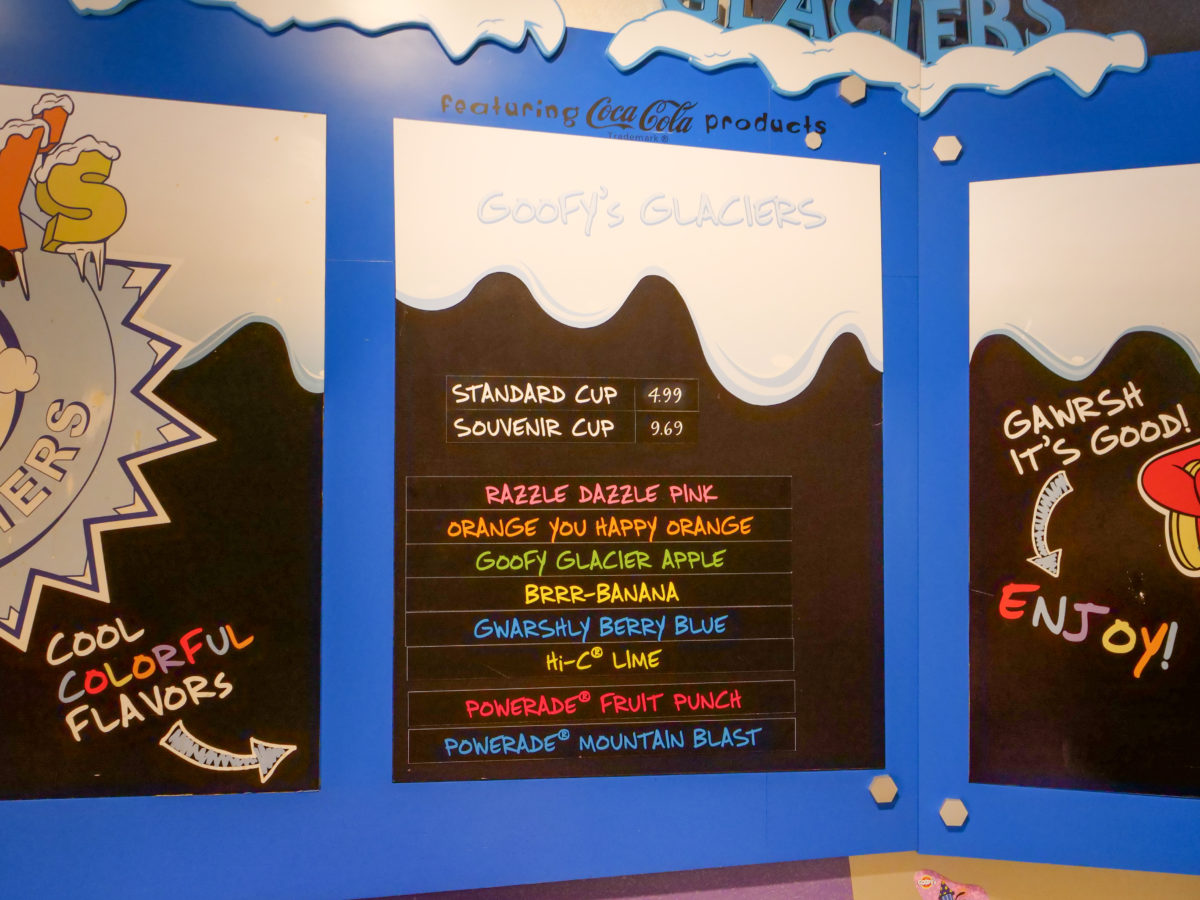 GLACIERS
featuring Coca-Cola products
Trademark ®
GOOFY'S GLACIERS
STANDARD CUP 4.99
SOUVENIR CUP 9.69
RAZZLE DAZZLE PINK
ORANGE YOU HAPPY ORANGE
GOOFY GLACIER APPLE
BRRR-BANANA
GWARSHLY BERRY BLUE
Hi-C® LIME
POWERADE® FRUIT PUNCH
POWERADE® MOUNTAIN BLAST
'S
IERS
COOL
COLORFUL
FLAVORS
GAWRSH
IT'S GOOD!
ENJOY!